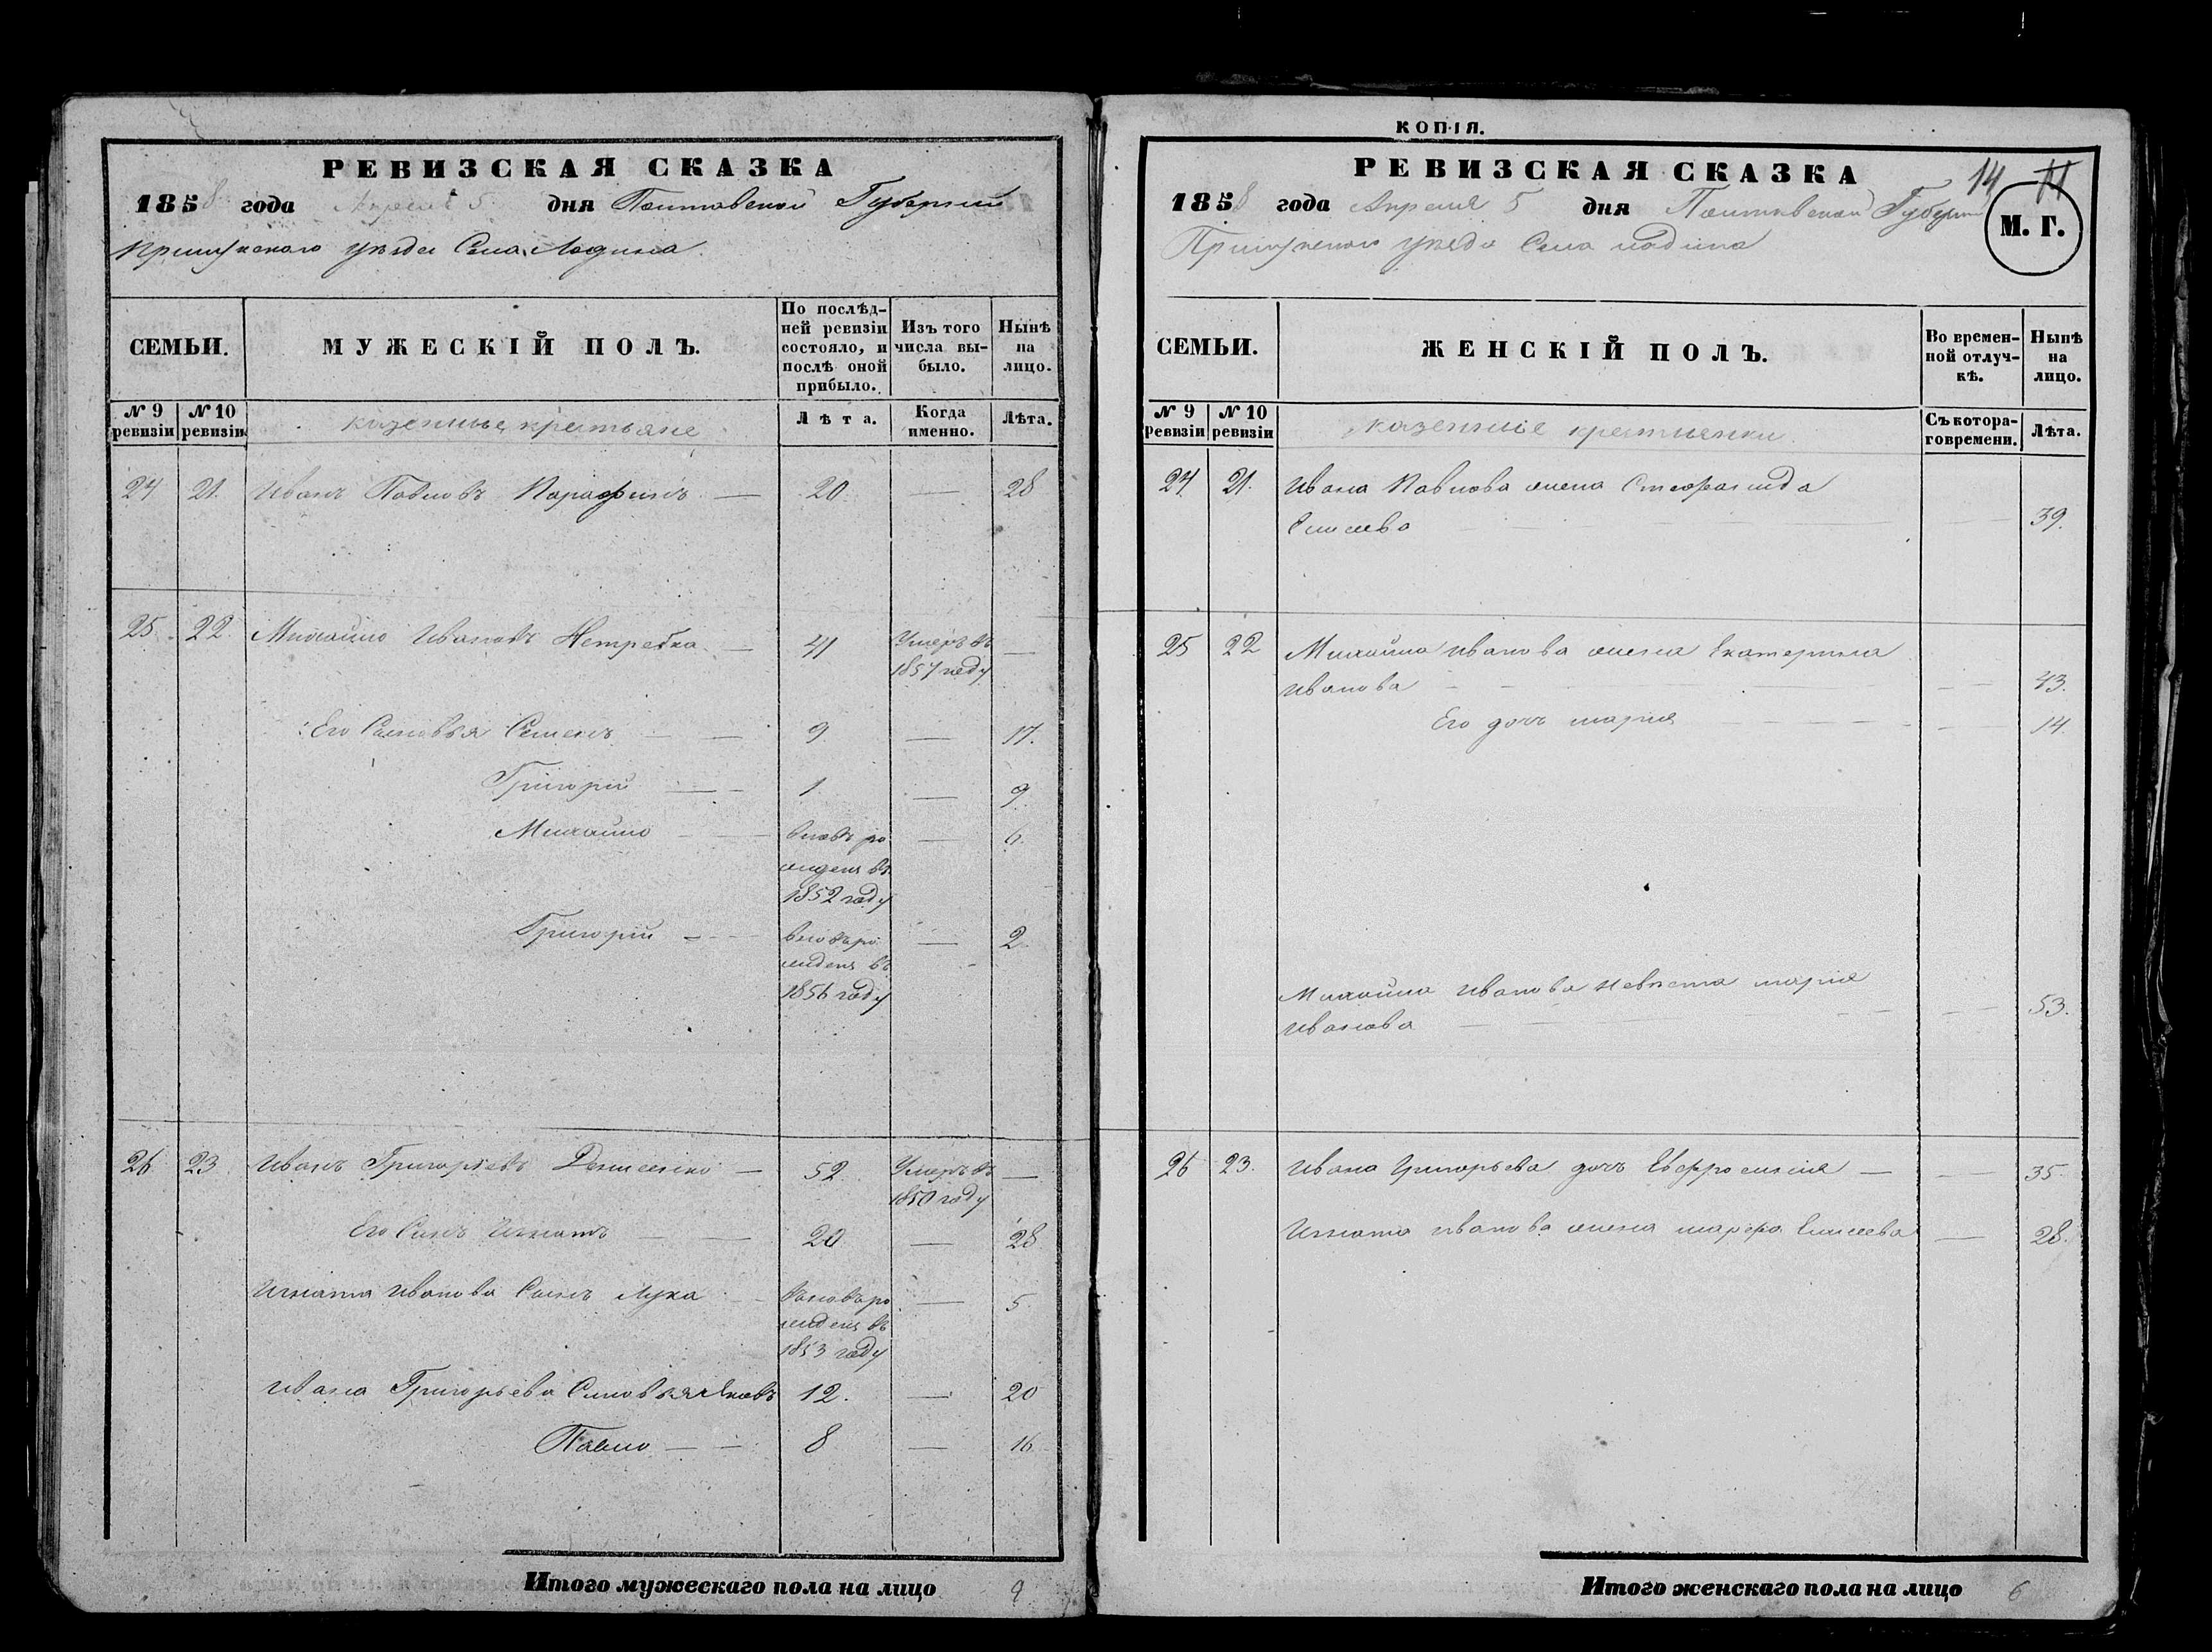 РЕВИЗСКАЯ СКАЗКА
1858 года Апреля 5 дня Полтавской Губернии
Прилуцкого уезда Села Ладина
СЕМЬИ.
МУЖЕСКІЙ ПОЛЪ.
По послѣд-
ней ревизіи
состояло, и
послѣ оной
прибыло.
Изъ того
числа вы-
было.
Нынѣ
на
лицо.
№ 9
ревизіи
№ 10
ревизіи
казенные крестьяне
Лѣта.
Когда
именно.
Лѣта.
24 21. Иванъ Павловъ Парафинъ — 20. — 28
25. 22. Михайло Ивановъ Нетребка — 41 Умеръ въ —
1857 году
Его Сыновья Семенъ — — 9. — 17.
Григорій — — 1. — 9.
Михайло — — вновь ро — 6.
жденъ въ
1852 году
Григорій — — вновь ро — 2.
жденъ въ
1856 году
26. 23. Иванъ Григорьевъ — 52. Умеръ въ —
1850 году
Его Сынъ Игнатъ — — 20. — 28
Игната Иванова Сынъ Лука — вновь ро — 5.
жденъ въ
1853 году
Ивана Григорьева Сыновья Яковъ 12. — 20
Павло — — 8 — 16
Итого мужескаго пола на лицо 9
КОПІЯ.
РЕВИЗСКАЯ СКАЗКА
14 11
1858 года Апреля 5 дня Полтавской Губернии
М. Г.
Прилуцкого уезда Села Ладина
СЕМЬИ.
ЖЕНСКІЙ ПОЛЪ.
Во времен-
ной отлуч-
кѣ.
Нынѣ
на
лицо.
№ 9
ревизіи
№ 10
ревизіи
казенные крестьянки
Съ котора-
го времени.
Лѣта.
24. 21. Ивана Павлова жена Стефанида
Елисеева — — 39.
25 22 Михайла Иванова жена Екатерина
Иванова — — 43.
Его дочь Мария — — 14.
Михайла Иванова невѣста Мария
Иванова — — 53.
26 23. Ивана Григорьева дочь Евфросиния — — 35.
Игната Иванова жена Марфа Елисеева — 28.
Итого женскаго пола на лицо 6